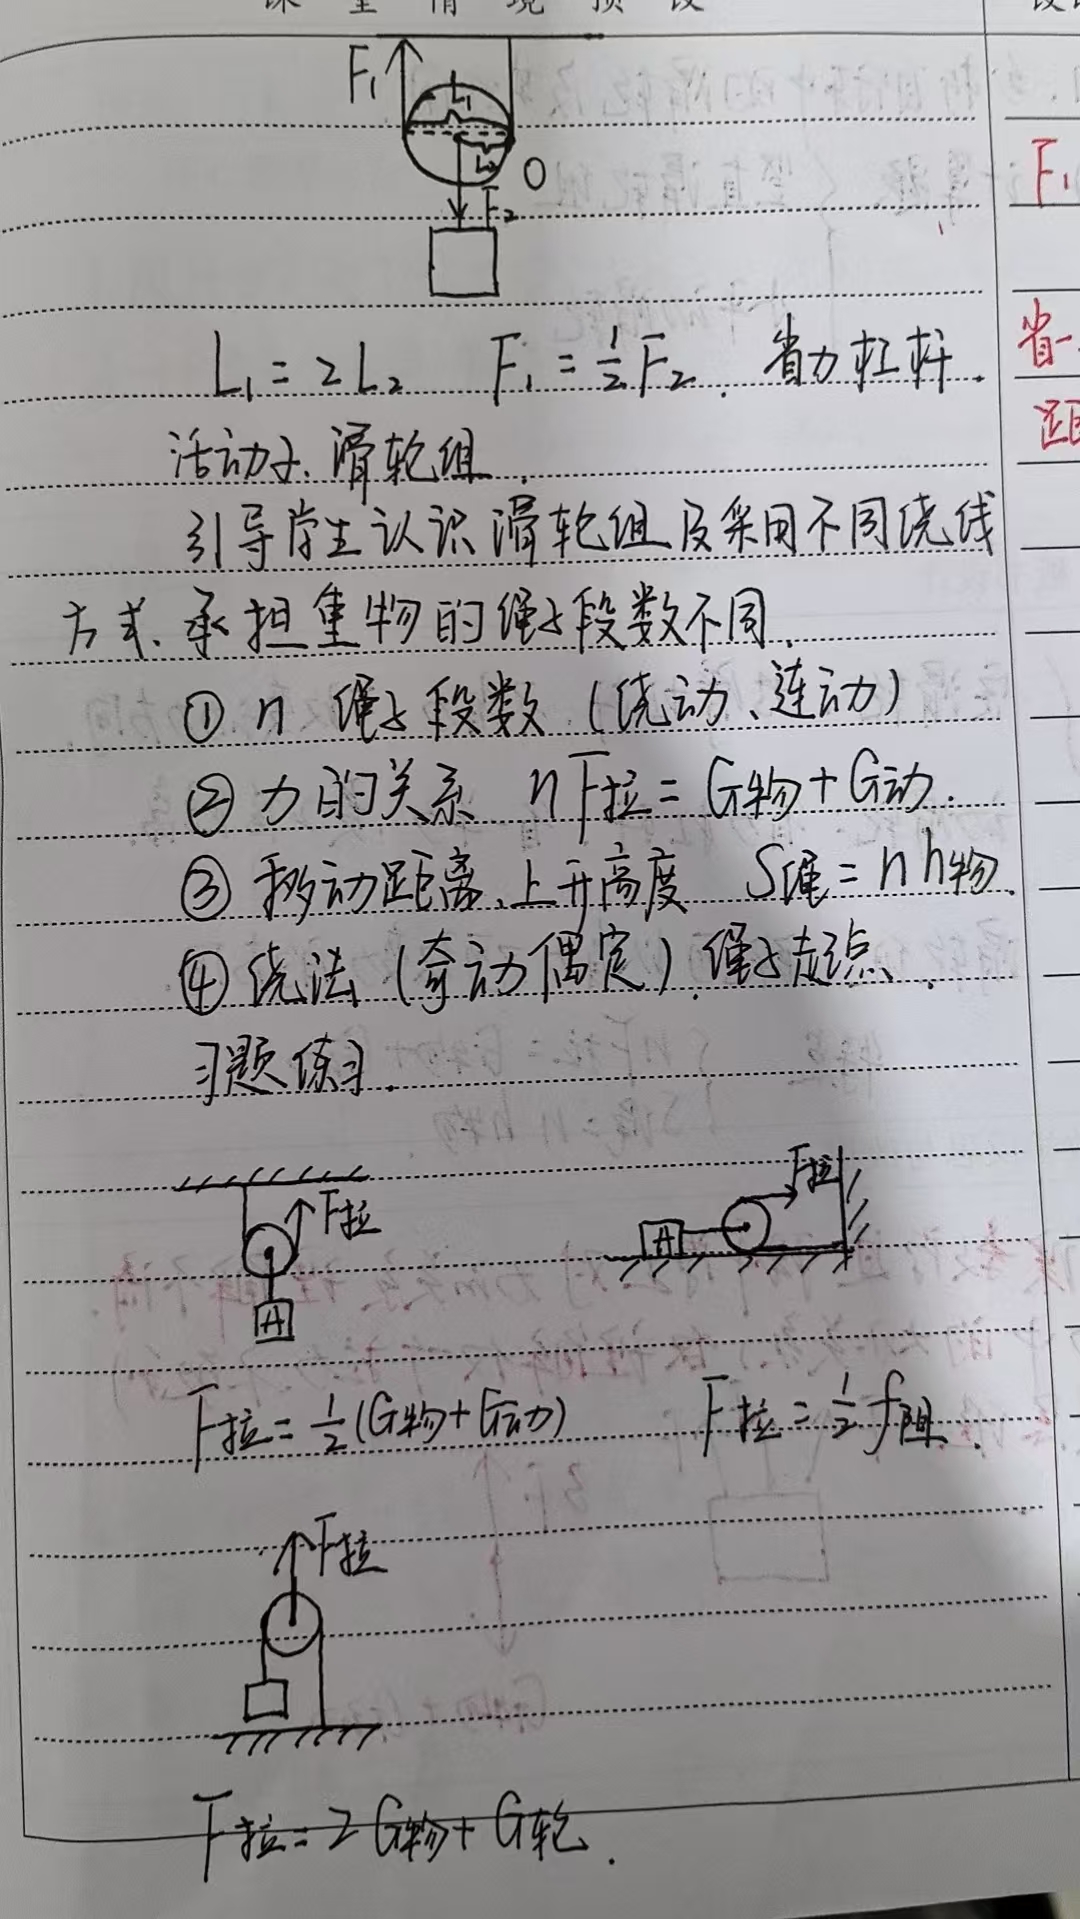 课堂情境预设
F₁
L₁
L₂
O
F₂
F₁
L₁=2L₂ F₁=½F₂. 省力杠杆.
省一
活动3. 滑轮组.
引导学生认识滑轮组及采用不同绕线
方式、承担重物的绳子段数不同.
① n 绳子段数 (绕动、连动)
② 力的关系 nF拉=G物+G动.
③ 移动距离、上升高度 S绳=nh物.
④ 绕法 (奇动偶定). 绳子起点.
习题练习.
F拉
F拉
A
A
F拉=½(G物+G动) F拉=½f阻.
F拉
F拉=2G物+G轮.